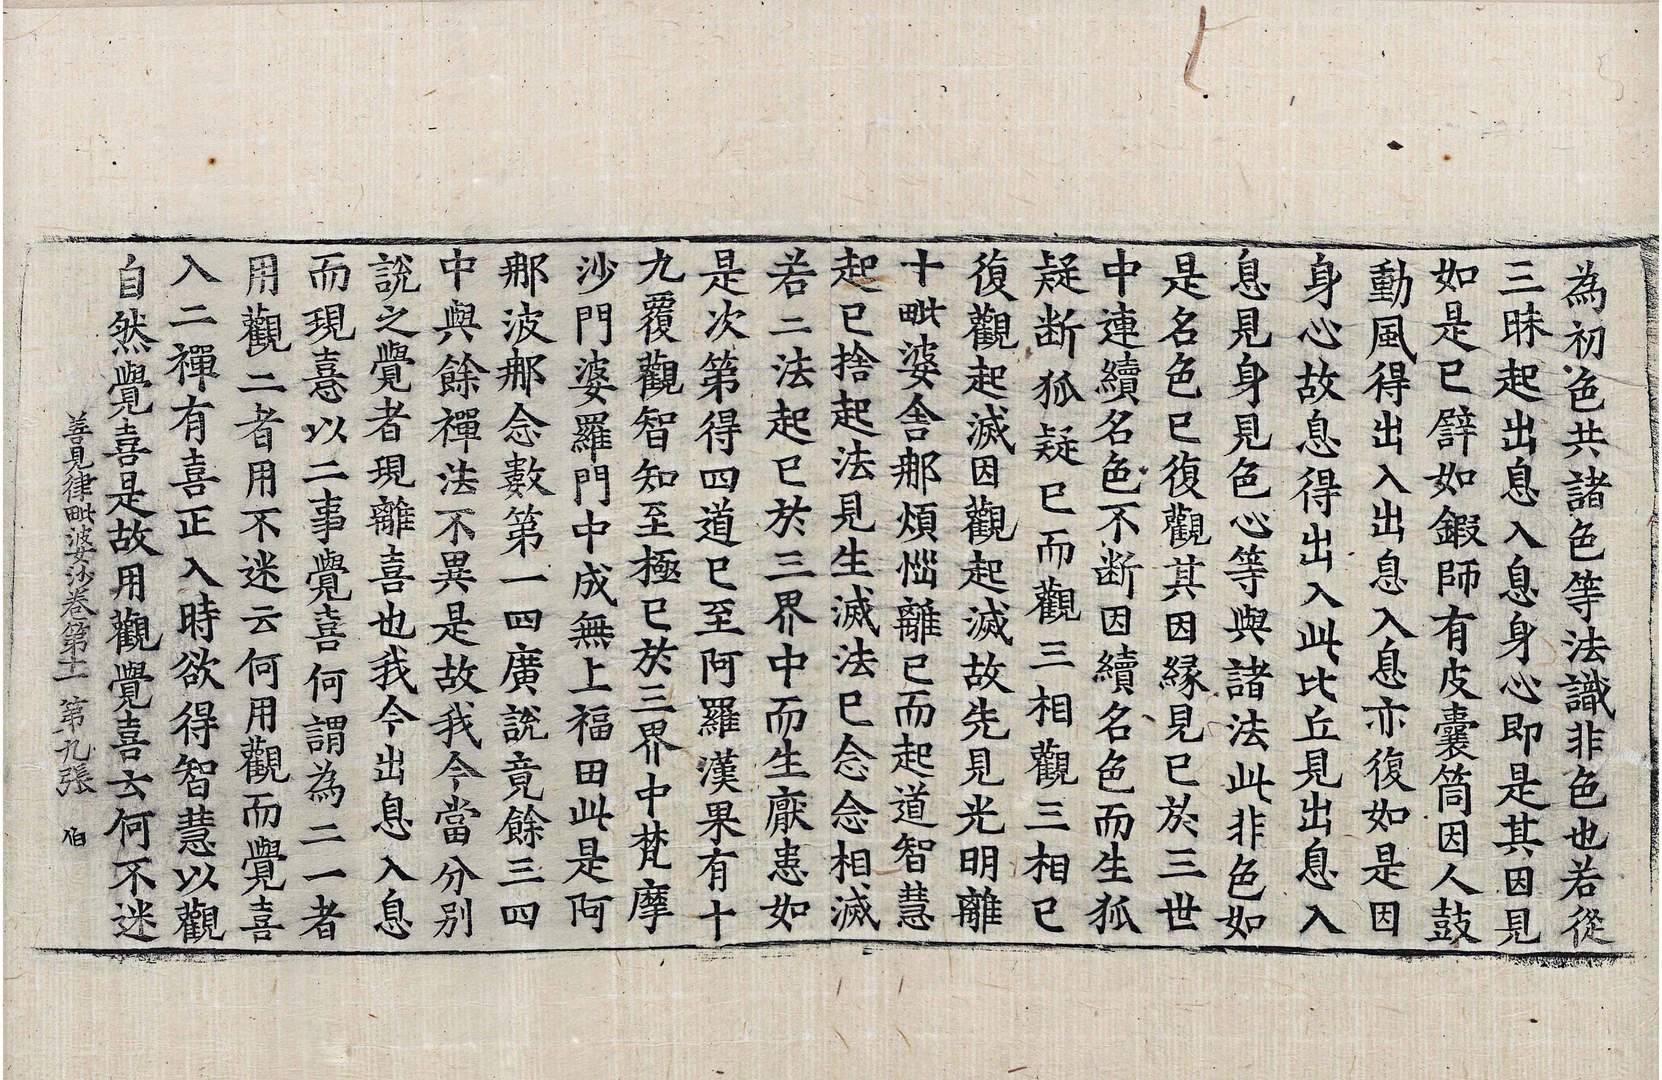 為初色共諸色等法識非色也若從
三昧起出息入息身心即是其因見
如是已譬如鍛師有皮囊筒因人鼓
動風得出入出息入息亦復如是因
身心故息得出入此比丘見出息入
息見身見色心等與諸法此非色如
是名色已復觀其因縁見已於三世
中連續名色不断因續名色而生狐
疑断狐疑已而觀三相觀三相已
復觀起滅因觀起滅故先見光明離
十毗婆舍那煩惱離已而起道智慧
起已捨起法見生滅法已念念相滅
若二法起已於三界中而生厭恚如
是次第得四道已至阿羅漢果有十
九覆觀智知至極已於三界中梵摩
沙門婆羅門中成無上福田此是阿
那波那念數第一四廣說竟餘三四
中與餘禪法不異是故我今當分別
說之覺者現離喜也我今出息入息
而現憙以二事覺喜何謂為二一者
用觀二者用不迷云何用觀而覺喜
入二禪有喜正入時欲得智慧以觀
自然覺喜是故用觀覺喜云何不迷
善見律毗婆沙卷第十一 第九張 伯